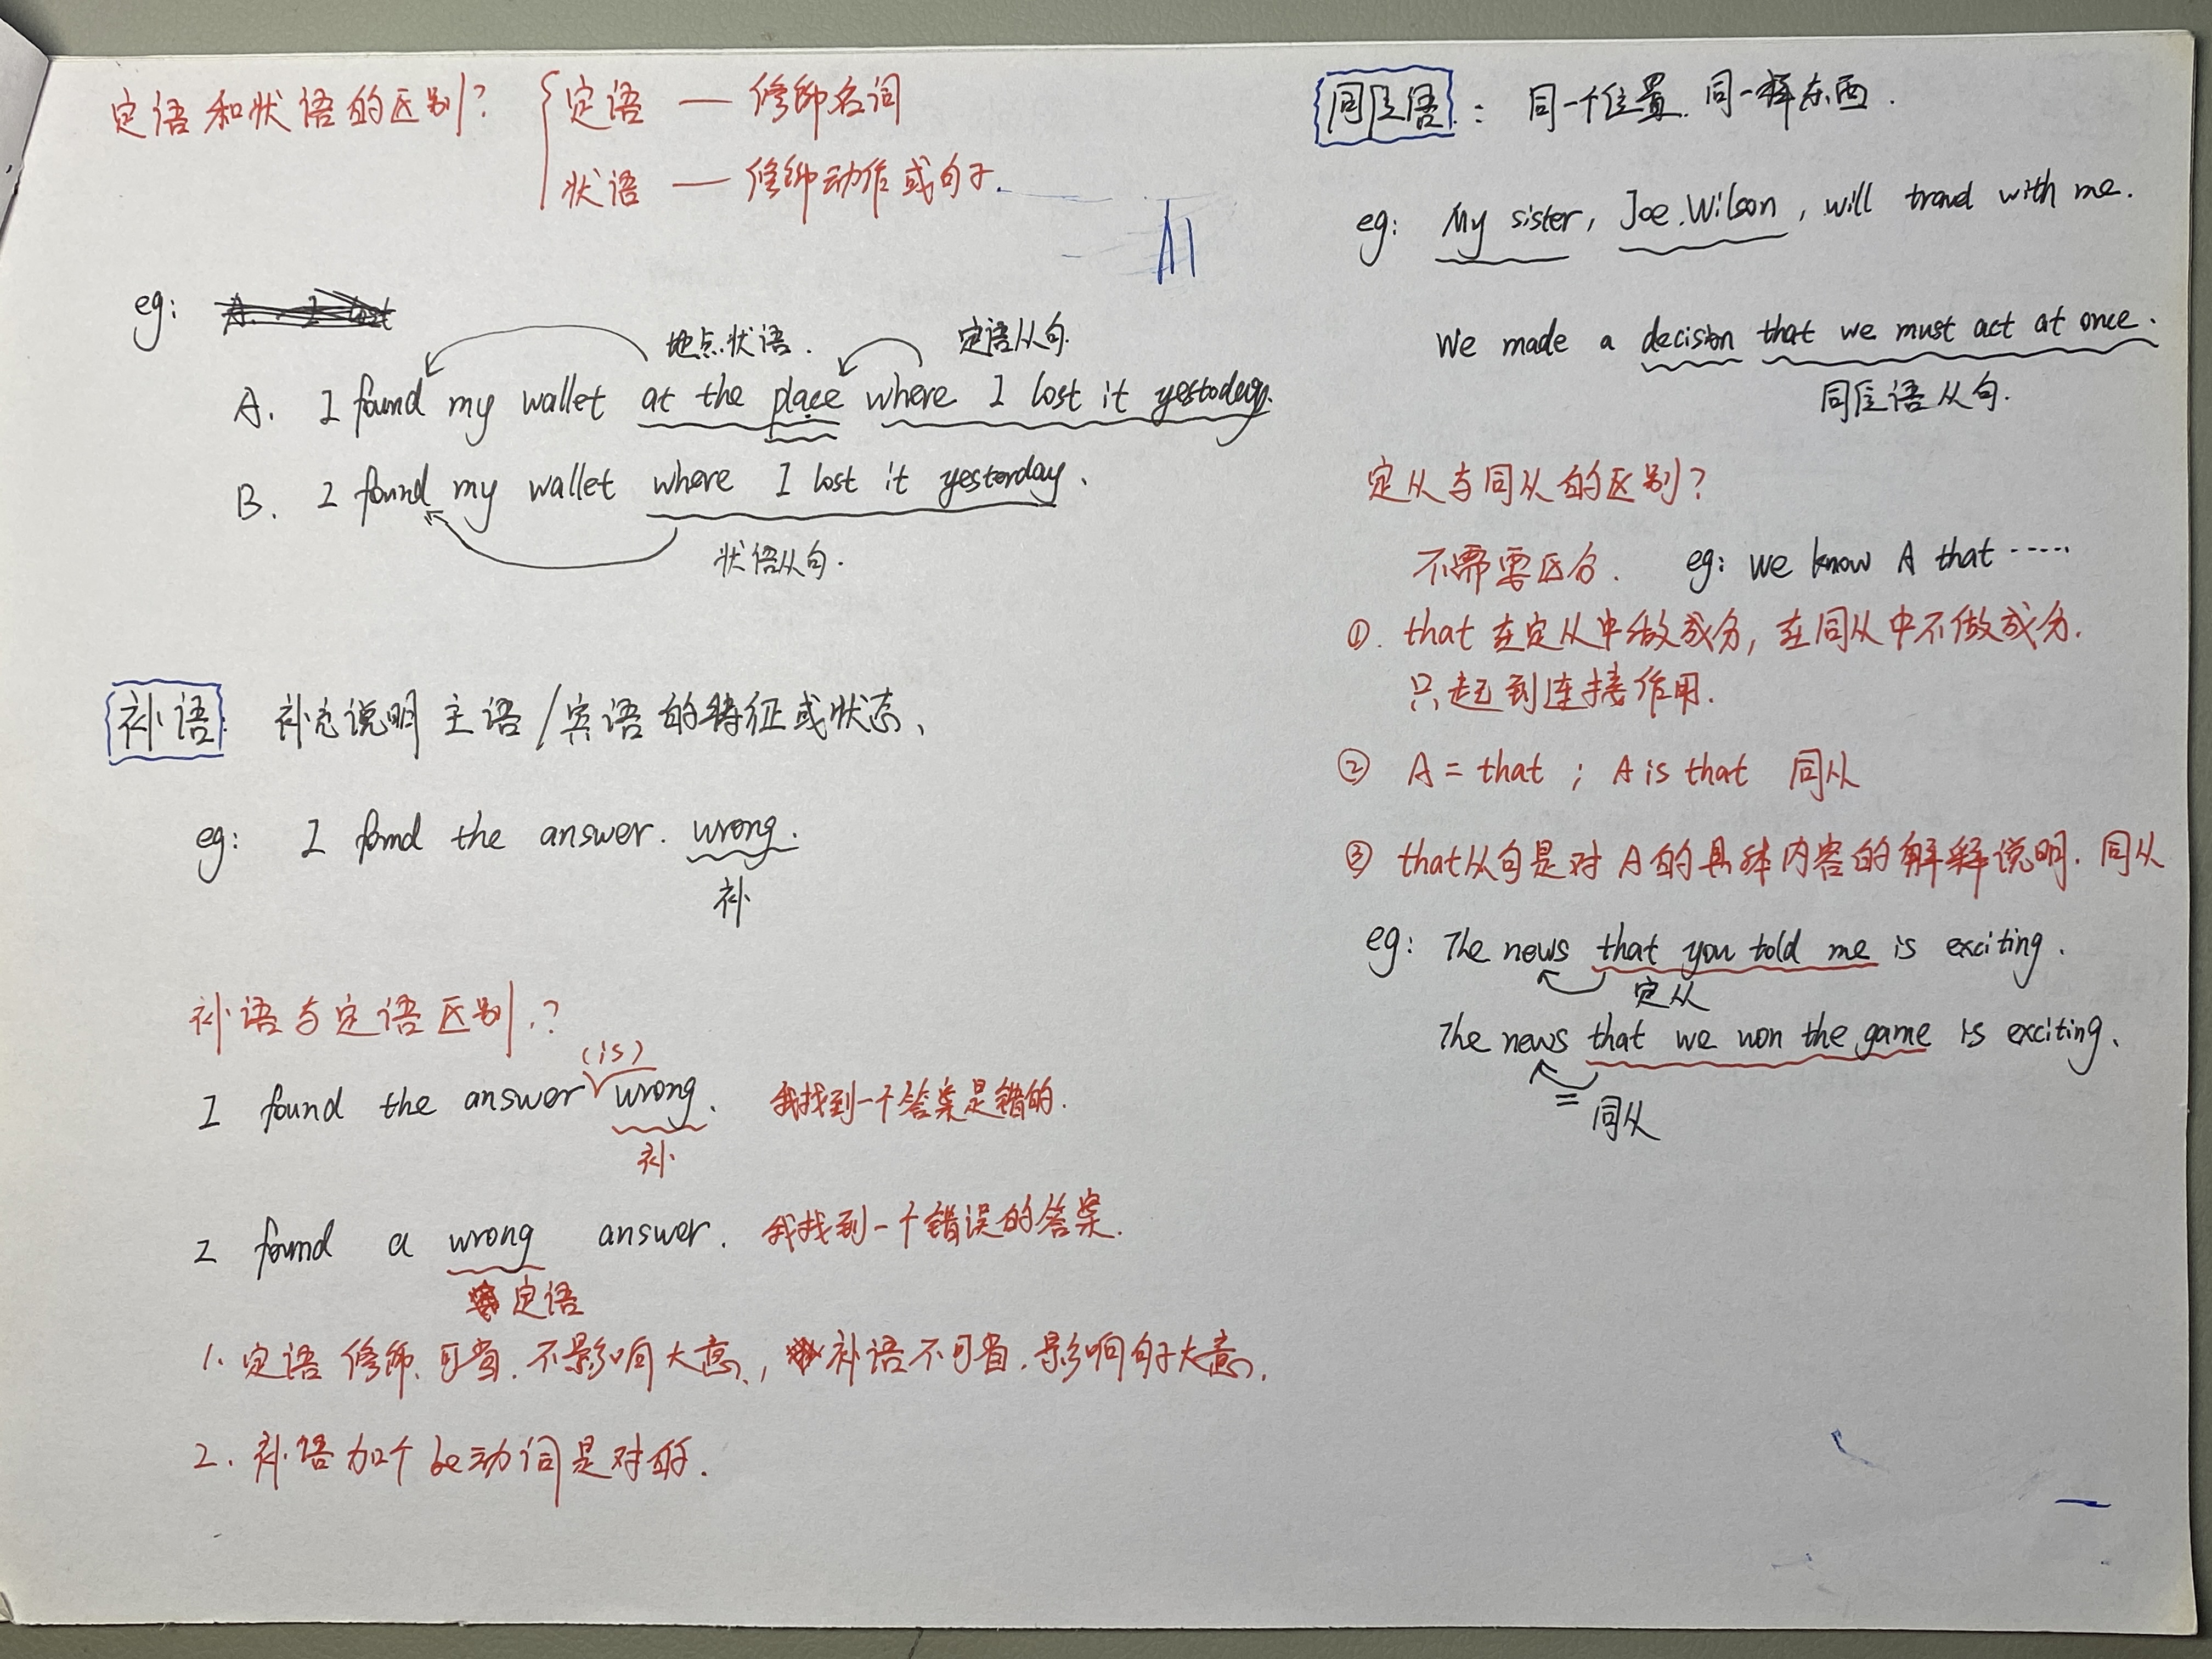 定语和状语的区别?
定语 — 修饰名词
状语 — 修饰动作或句子.
eg:
地点状语. 定语从句.
A. I found my wallet at the place where I lost it yesterday.
B. I found my wallet where I lost it yesterday.
状语从句.
补语: 补充说明主语/宾语的特征或状态、
eg: I found the answer. wrong.
补
补语与定语区别.?
(is)
I found the answer wrong. 我找到一个答案是错的.
补
I found a wrong answer. 我找到一个错误的答案.
定语
1. 定语修饰、可省. 不影响大意, 补语不可省. 影响句子大意.
2. 补语加个be动词是对的.
同位语: 同一个位置. 同一样东西.
eg: My sister, Joe.Wilson, will travel with me.
We made a decision that we must act at once.
同位语从句.
定从与同从的区别?
不需要区分. eg: we know A that ·····
①. that在定从中做成分, 在同从中不做成分.
只起到连接作用.
② A = that ; A is that 同从
③ that从句是对A的具体内容的解释说明. 同从
eg: The news that you told me is exciting.
定从
The news that we won the game is exciting.
= 同从